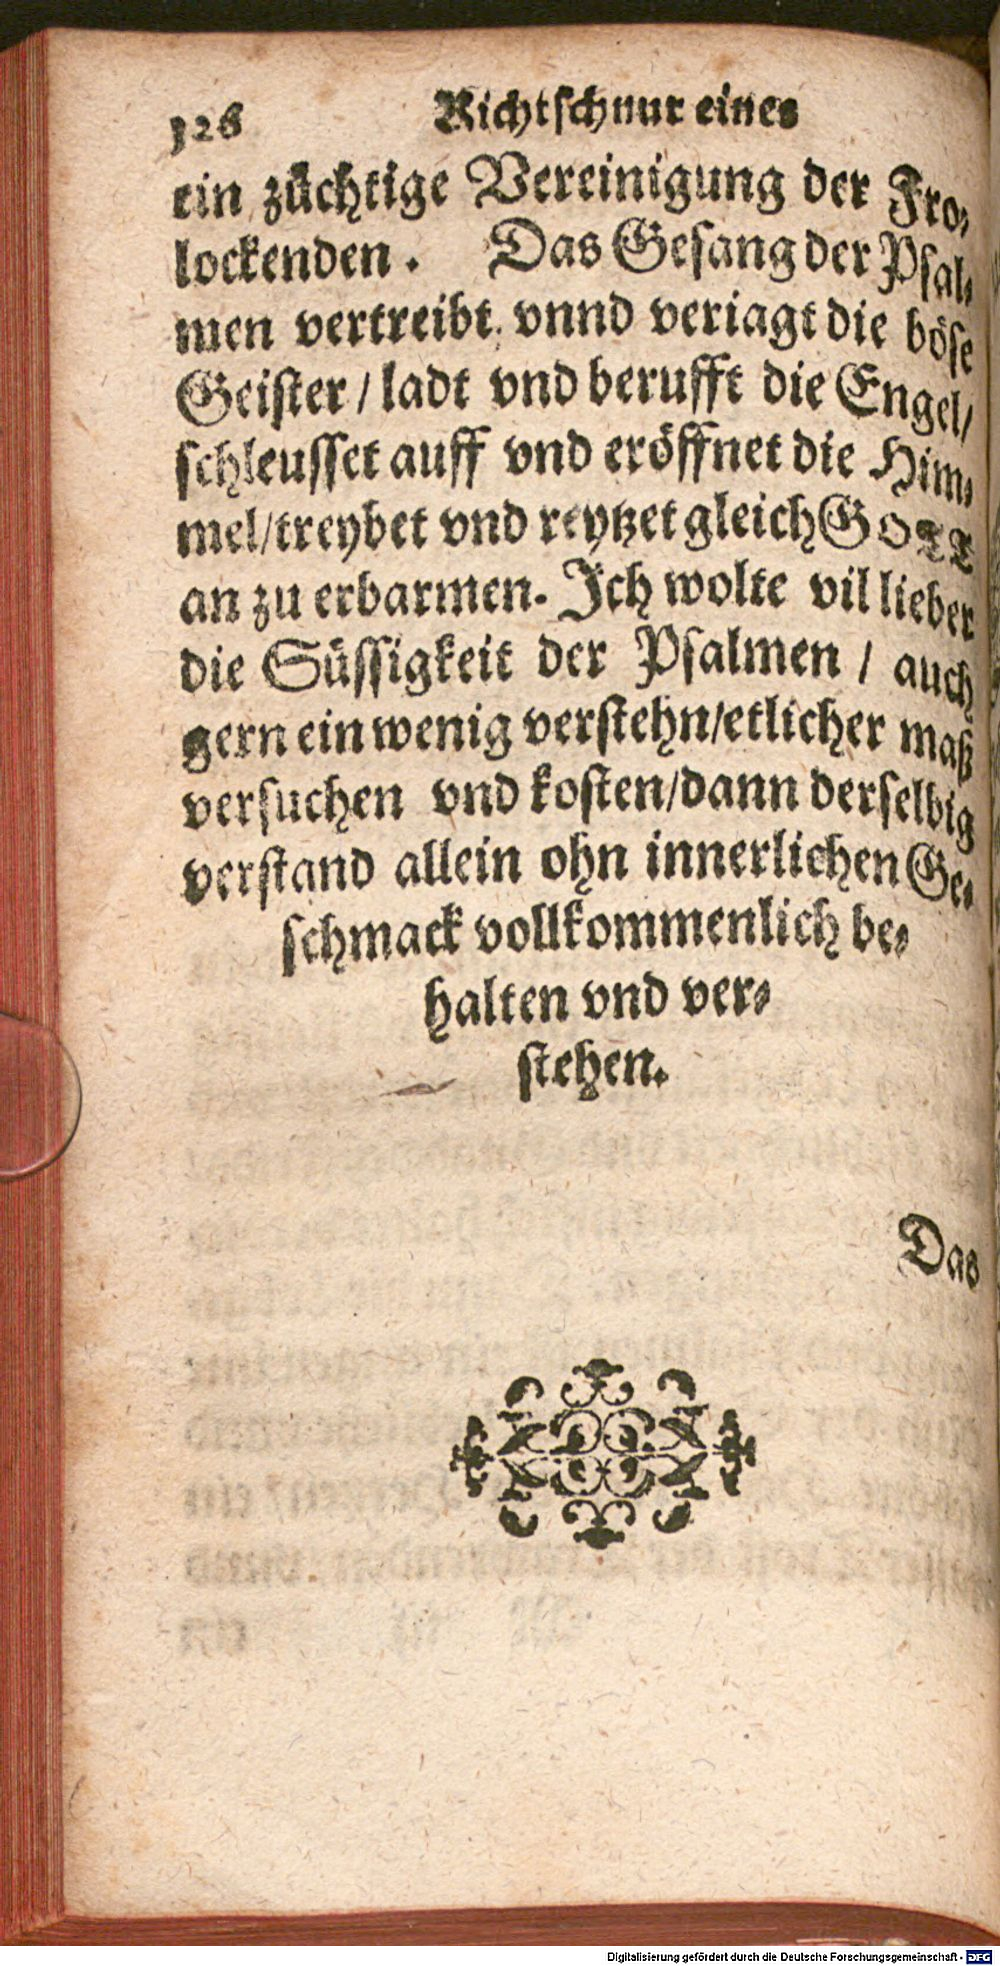 326 Richtschnur eines
ein züchtige Vereinigung der Fro-
lockenden. Das Gesang der Psal-
men vertreibt vnnd veriagt die böse
Geister / ladt vnd berufft die Engel/
schleusset auff vnd eröffnet die Him-
mel/treybet vnd reytzet gleich GOTT
an zu erbarmen. Ich wolte vil lieber
die Süssigkeit der Psalmen / auch
gern ein wenig verstehn/etlicher maß
versuchen vnd kosten/dann derselbig
verstand allein ohn innerlichen Ge-
schmack vollkommenlich be-
halten vnd ver-
stehen.
Das
Digitalisierung gefördert durch die Deutsche Forschungsgemeinschaft - DFG